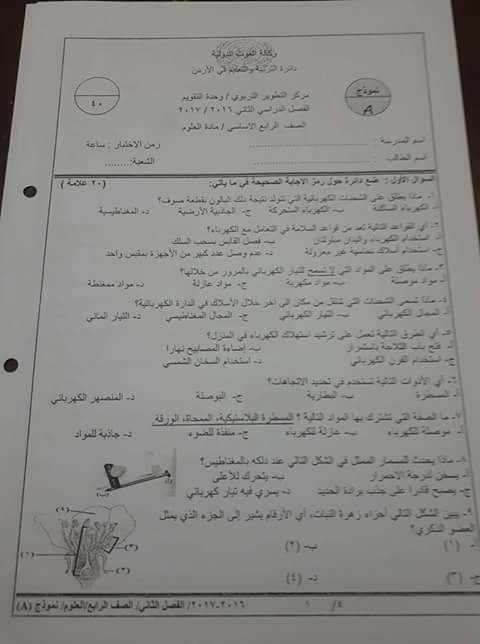 وكالة الغوث الدولية
دائرة التربية والتعليم في الأردن
مركز التطوير التربوي / وحدة التقويم
الفصل الدراسي الثاني ٢٠١٦ / ٢٠١٧
الصف الرابع الاساسي / مادة العلوم
نموذج
A
٤٠
اسم المدرسة : ........................ زمن الاختبار : ساعة
اسم الطالب : ........................ الشعبة:........
السؤال الأول : ضع دائرة حول رمز الاجابة الصحيحة في ما يأتي: (٢٠ علامة )
١- ماذا يطلق على الشحنات الكهربائية التي تتولد نتيجة دلك البالون بقطعة صوف؟
أ- الكهرباء الساكنة ب- الكهرباء المتحركة ج- الجاذبية الأرضية د- المغناطيسية
٢- أي القواعد التالية تعد من قواعد السلامة في التعامل مع الكهرباء؟
أ- استخدام الكهرباء واليدان مبلولتان ب- فصل القابس بسحب السلك
ج- استخدام أسلاك نحاسية غير معزولة د- عدم وصل عدد كبير من الأجهزة بمقبس واحد
٣- ماذا يطلق على المواد التي لا تسمح للتيار الكهربائي بالمرور من خلالها؟
أ- مواد موصلة ب- مواد مكهربة ج- مواد عازلة د- مواد ممغنطة
٤- ماذا تسمى الشحنات التي تنتقل من مكان الى آخر خلال الأسلاك في الدارة الكهربائية؟
أ- المجال الكهربائي ب- التيار الكهربائي ج- المجال المغناطيسي د- التيار المائي
٥- أي الطرق التالية تعمل على ترشيد استهلاك الكهرباء في المنزل؟
أ- فتح باب الثلاجة باستمرار ب- إضاءة المصابيح نهارا
ج- استخدام الفرن الكهربائي د- استخدام السخان الشمسي
٦- أي الأدوات التالية تستخدم في تحديد الاتجاهات؟
أ- المسطرة ب- البطارية ج- البوصلة د- المنصهر الكهربائي
٧- ما الصفة التي تشترك بها المواد التالية ؟ المسطرة البلاستيكية، الممحاة، الورقة.
أ- موصلة للكهرباء ب- عازلة للكهرباء ج- منفذة للضوء د- جاذبة للمواد
٨- ماذا يحدث للمسمار الممثل في الشكل التالي عند دلكه بالمغناطيس؟
أ- يسخن لدرجة الاحمرار ب- يتحرك للأعلى
ج- يصبح قادرا على جذب برادة الحديد د- يسري فيه تيار كهربائي
(ب)
٩- يبين الشكل التالي أجزاء زهرة النبات، أي الأرقام يشير إلى الجزء الذي يمثل
العضو الذكري؟
أ- (١) ب- (٢)
ج- (٣) د- (٤)
(١)
(٣)
٤/ ١
٢٠١٦-٢٠١٧/ الفصل الثاني/ الصف الرابع/العلوم/ نموذج (A)